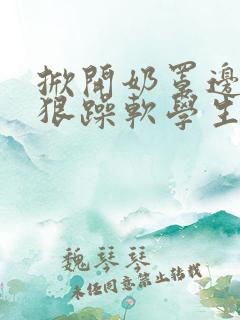 掀開奶罩邊
狠躁軟學生
魏琴琴
未任同意禁止转载